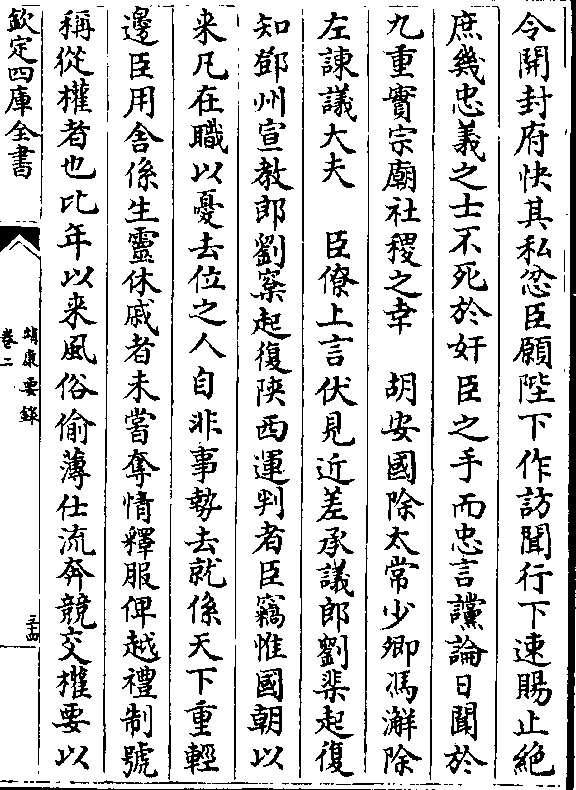 令開封府快其私忿臣願陛下作訪聞行下速賜止絶
庶幾忠義之士不死於奸臣之手而忠言讜論日聞於
九重實宗廟社稷之幸　胡安國除太常少卿馮澥除
左諫議大夫　臣僚上言伏見近差承議郎劉棐起復
知鄧州宣教郎劉寀起復陜西運判者臣竊惟國朝以
来凡在職以憂去位之人自非事勢去就係天下重輕
邊臣用舍係生靈休戚者未嘗奪情釋服俾越禮制號
稱從權者也比年以来風俗偷薄仕流奔競交權要以
欽定四庫全書
靖康要錄
卷二
三十四